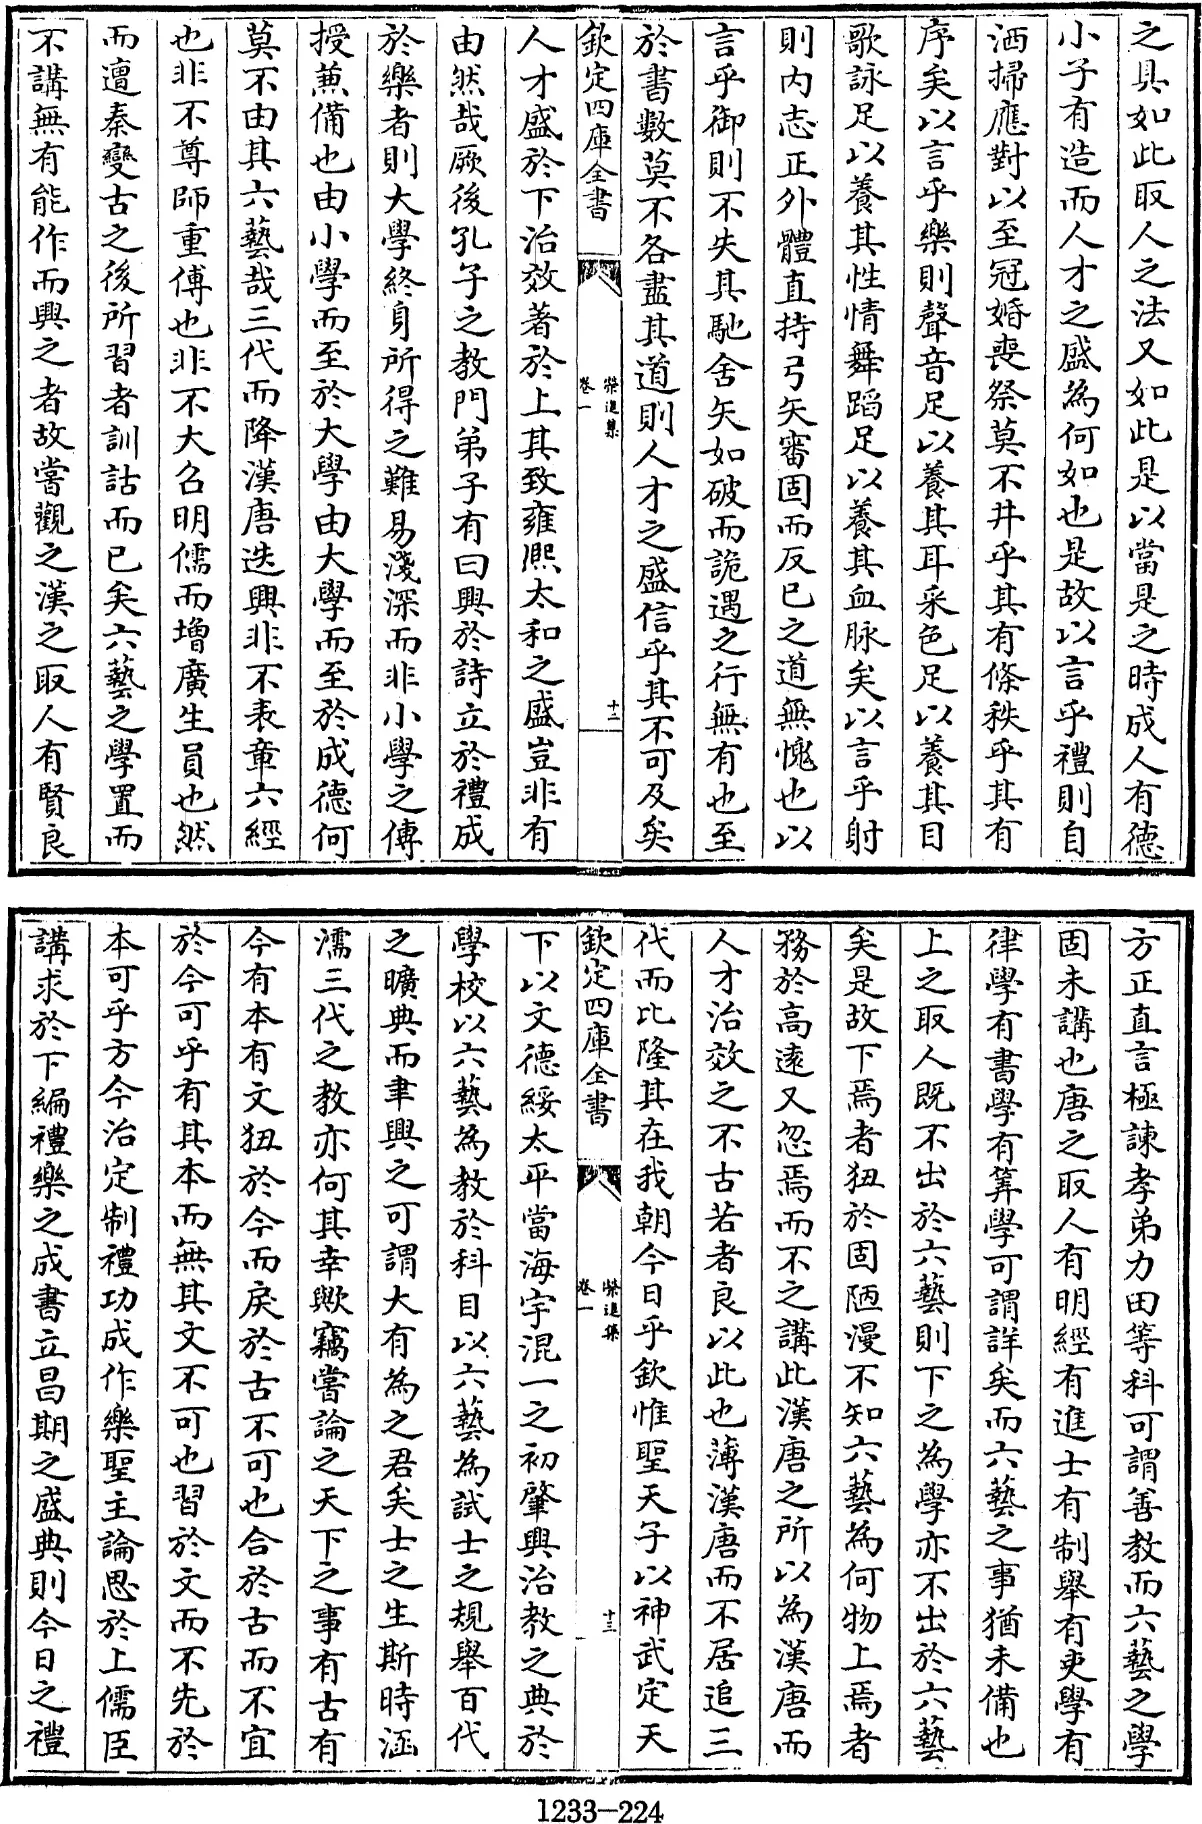 之具如此取人之法又如此是以當是之時成人有德
小子有造而人才之盛為何如也是故以言乎禮則自
洒掃應對以至冠婚喪祭莫不井乎其有條秩乎其有
序矣以言乎樂則聲音足以養其耳采色足以養其目
歌詠足以養其性情舞蹈足以養其血脉矣以言乎射
則内志正外體直持弓矢審固而反已之道無愧也以
言乎御則不失其馳舍矢如破而詭遇之行無有也至
於書數莫不各盡其道則人才之盛信乎其不可及矣
欽定四庫全書
榮進集
卷一
十二
人才盛於下治效著於上其致雍熙太和之盛豈非有
由然哉厥後孔子之教門弟子有曰興於詩立於禮成
於樂者則大學終身所得之難易淺深而非小學之傳
授兼備也由小學而至於大學由大學而至於成德何
莫不由其六藝哉三代而降漢唐迭興非不表章六經
也非不尊師重傅也非不大召明儒而增廣生員也然
而邅秦變古之後所習者訓詁而已矣六藝之學置而
不講無有能作而興之者故嘗觀之漢之取人有賢良
方正直言極諫孝弟力田等科可謂善教而六藝之學
固未講也唐之取人有明經有進士有制舉有吏學有
律學有書學有筭學可謂詳矣而六藝之事猶未備也
上之取人既不出於六藝則下之為學亦不出於六藝
矣是故下焉者狃於固陋漫不知六藝為何物上焉者
務於高遠又忽焉而不之講此漢唐之所以為漢唐而
人才治效之不古若者良以此也薄漢唐而不居追三
代而比隆其在我朝今日乎欽惟聖天子以神武定天
欽定四庫全書
榮進集
卷一
十三
下以文德綏太平當海宇混一之初肇興治教之典於
學校以六藝為教於科目以六藝為試士之規舉百代
之曠典而聿興之可謂大有為之君矣士之生斯時涵
濡三代之教亦何其幸歟竊嘗論之天下之事有古有
今有本有文狃於今而戾於古不可也合於古而不宜
於今可乎有其本而無其文不可也習於文而不先於
本可乎方今治定制禮功成作樂聖主論思於上儒臣
講求於下編禮樂之成書立昌期之盛典則今日之禮
1233-224